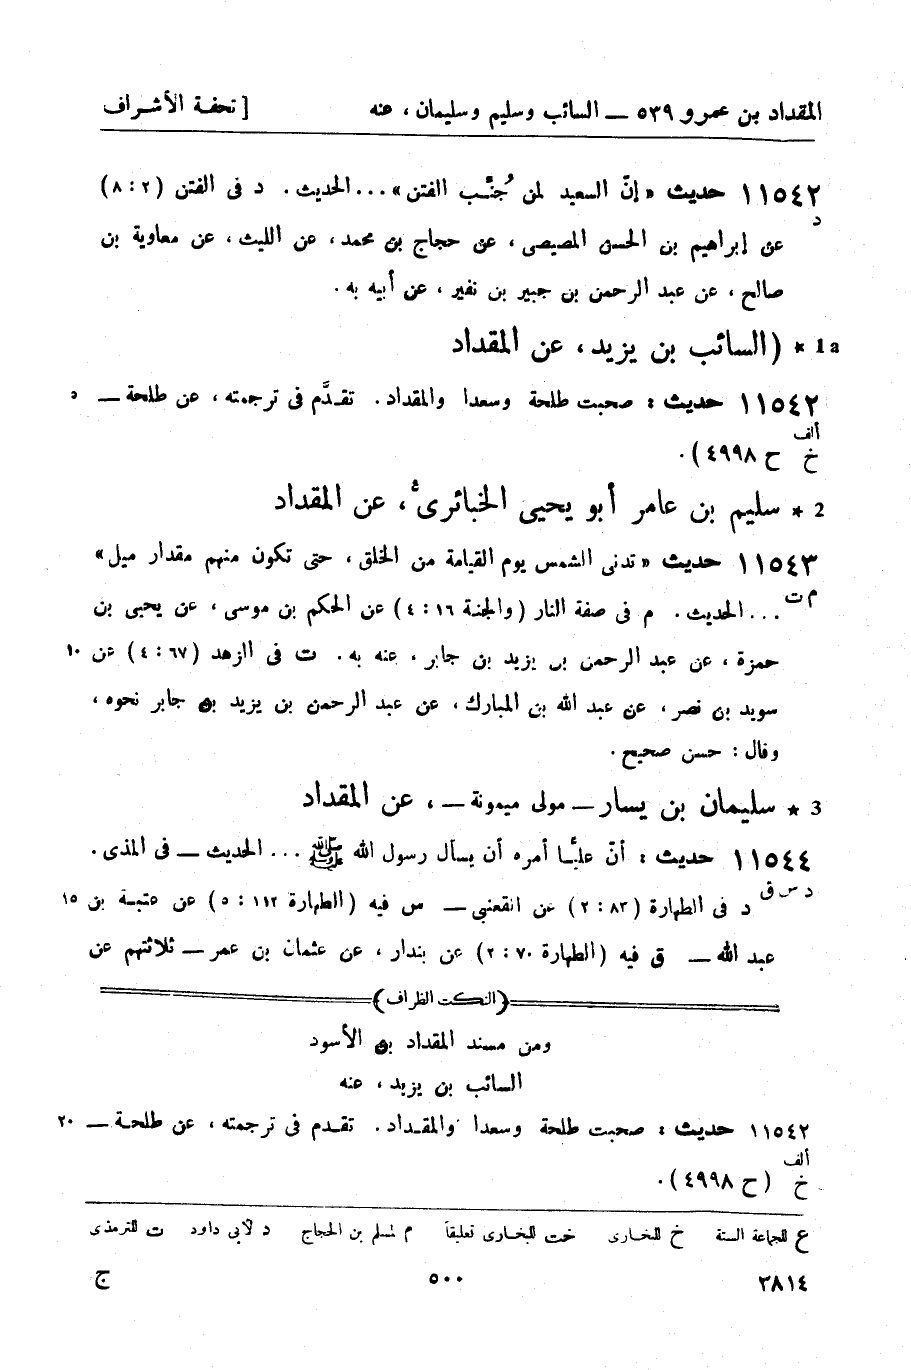 المقداد بن عمرو ٥٣٩ — السائب وسليم وسليمان ، عنه [ تحفة الأشراف
١١٥٤٢ حديث « إنّ السعيد لمن جُنِّب الفتن » ... الحديث . د فى الفتن (٢ : ٨)
د
عن إبراهيم بن الحسن المصيصى ، عن حجاج بن محمد ، عن الليث ، عن معاوية بن
صالح ، عن عبد الرحمن بن جبير بن نفير ، عن أبيه به .
1a * (السائب بن يزيد ، عن المقداد
١١٥٤٢ حديث : صحبت طلحة وسعدا والمقداد . تقدَّم فى ترجمته ، عن طلحة — ٥
ألف
خ ح ٤٩٩٨) .
2 * سليم بن عامر أبو يحيى الخبائرىُ ، عن المقداد
١١٥٤٣ حديث « تدنى الشمس يوم القيامة من الخلق ، حتى تكون منهم مقدار ميل »
م ت
... الحديث . م فى صفة النار (والجنة ١٦ : ٤) عن الحكم بن موسى ، عن يحيى بن
حمزة ، عن عبد الرحمن بن يزيد بن جابر ، عنه به . ت فى الزهد (٦٧ : ٤) عن ١٠
سويد بن نصر ، عن عبد الله بن المبارك ، عن عبد الرحمن بن يزيد بن جابر نحوه ،
وقال : حسن صحيح .
3 * سليمان بن يسار — مولى ميمونة — ، عن المقداد
١١٥٤٤ حديث : أنّ عليًّا أمره أن يسأل رسول الله ﷺ ... الحديث — فى المذى .
د س ق
د فى الطهارة (٨٣ : ٢) عن القعنبى — س فيه (الطهارة ١١٢ : ٥) عن عتبة بن ١٥
عبد الله — ق فيه (الطهارة ٧٠ : ٢) عن بندار ، عن عثمان بن عمر — ثلاثتهم عن
(النكت الظراف)
ومن مسند المقداد بن الأسود
السائب بن يزيد ، عنه
١١٥٤٢ حديث : صحبت طلحة وسعدا والمقداد . تقدم فى ترجمته ، عن طلحة — ٢٠
ألف
خ (ح ٤٩٩٨) .
ع للجماعة الستة خ للبخارى خت للبخارى تعليقاً م لمسلم بن الحجاج د لأبى داود ت للترمذى
٢٨١٤ ٥٠٠ ج